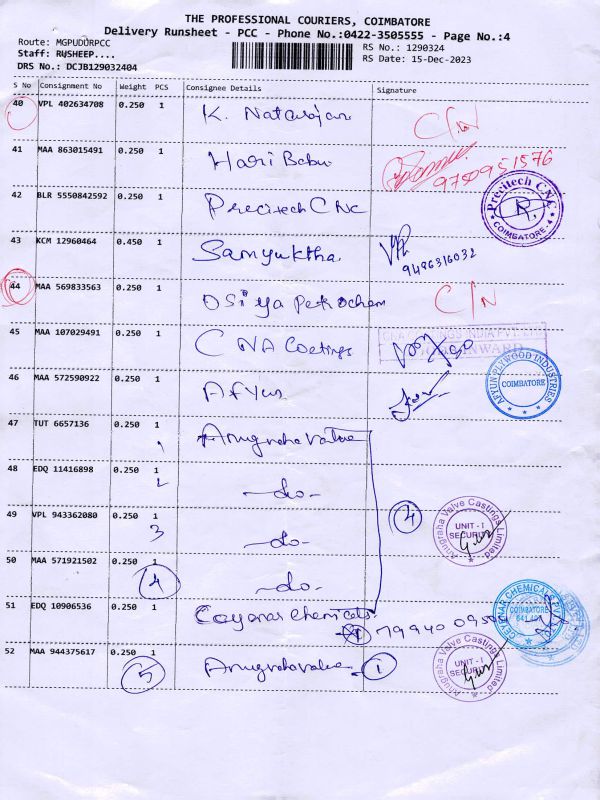 THE PROFESSIONAL COURIERS, COIMBATORE
Delivery Runsheet - PCC - Phone No.:0422-3505555 - Page No.:4
Route: MGPUDURPCC
RS No.: 1290324
Staff: RUSHEEP....
RS Date: 15-Dec-2023
DRS No.: DCJB129032404
S No Consignment No Weight PCS Consignee Details Signature
40 VPL 402634708 0.250 1 K. Natarajan C/N
41 MAA 863015491 0.250 1 Hari Babu 9750951576
42 BLR 5550842592 0.250 1 Precitech CNC
Precitech CNC
COIMBATORE-4
43 KCM 12960464 0.450 1 Samyuktha
9486316032
44 MAA 569833563 0.250 1 Osiya Petrochem C/N
45 MAA 107029491 0.250 1 CNA Coatings
INWARD
46 MAA 572590922 0.250 1 Afyun
AFYUN PLYWOOD INDUSTRIES
COIMBATORE
47 TUT 6657136 0.250 1 Anugraha Valve
1
48 EDQ 11416898 0.250 1 -do-
2
49 VPL 943362080 0.250 1 -do- 4
3
Anugraha Valve Castings Limited
UNIT - I
SECURITY
50 MAA 571921502 0.250 1 -do-
4
51 EDQ 10906536 0.250 1 Ceyenar Chemicals
CEYENAR CHEMICALS PVT
COIMBATORE
641 401
52 MAA 944375617 0.250 1 Anugraha Valve 1
5
Anugraha Valve Castings Limited
UNIT - I
SECURITY